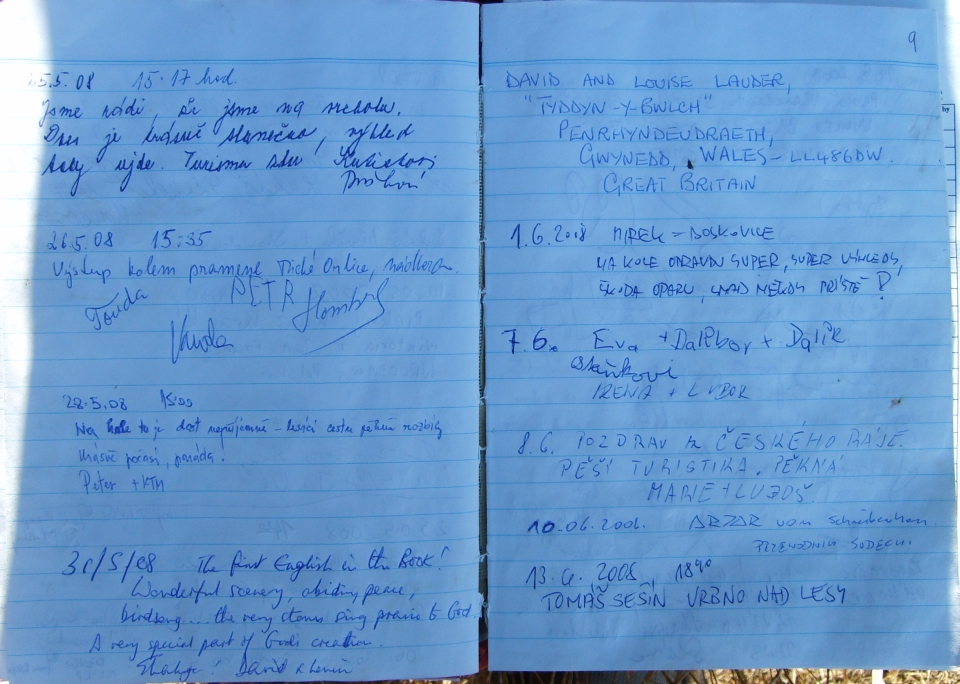 25.5.08 15.17 hod.
Jsme rádi, že jsme na vrcholu.
Dnes je krásně slunečno, výhled
tady ujde.
26.5.08 15:35
Výstup kolem pramene Tiché Orlice, nádhera.
Tonda PETR
28.5.08 15:00
Na kole to je dost nepříjemné - lesácí cestu pěkně rozbily
krásné počasí, paráda!
Peter + KTM
30/5/08 The first English in the Book!
Wonderful scenery, abiding peace,
birdsong... the very stones sing praise to God.
A very special part of God's creation.
David &
9
DAVID AND LOUISE LAUDER,
"TYDDYN-Y-BWLCH"
PENRHYNDEUDRAETH,
GWYNEDD, WALES - LL486DW.
GREAT BRITAIN
1.6.2008 MIREK - BOSKOVICE
NA KOLE OPRAVDU SUPER, SUPER VÝHLEDY,
ŠKODA OPARU, SNAD NĚKDY PŘÍŠTĚ
7.6. Eva + Dalibor + Dalík
IRENA + LUBOR
8.6. POZDRAV Z ČESKÉHO RÁJE.
PĚŠÍ TURISTIKA. PĚKNÁ
MARIE + LUBOŠ
10.06. vom
PRZEWODNIK SUDECKI
13.6. 2008 1840
TOMÁŠ SEŠÍN VRBNO NAD LESY